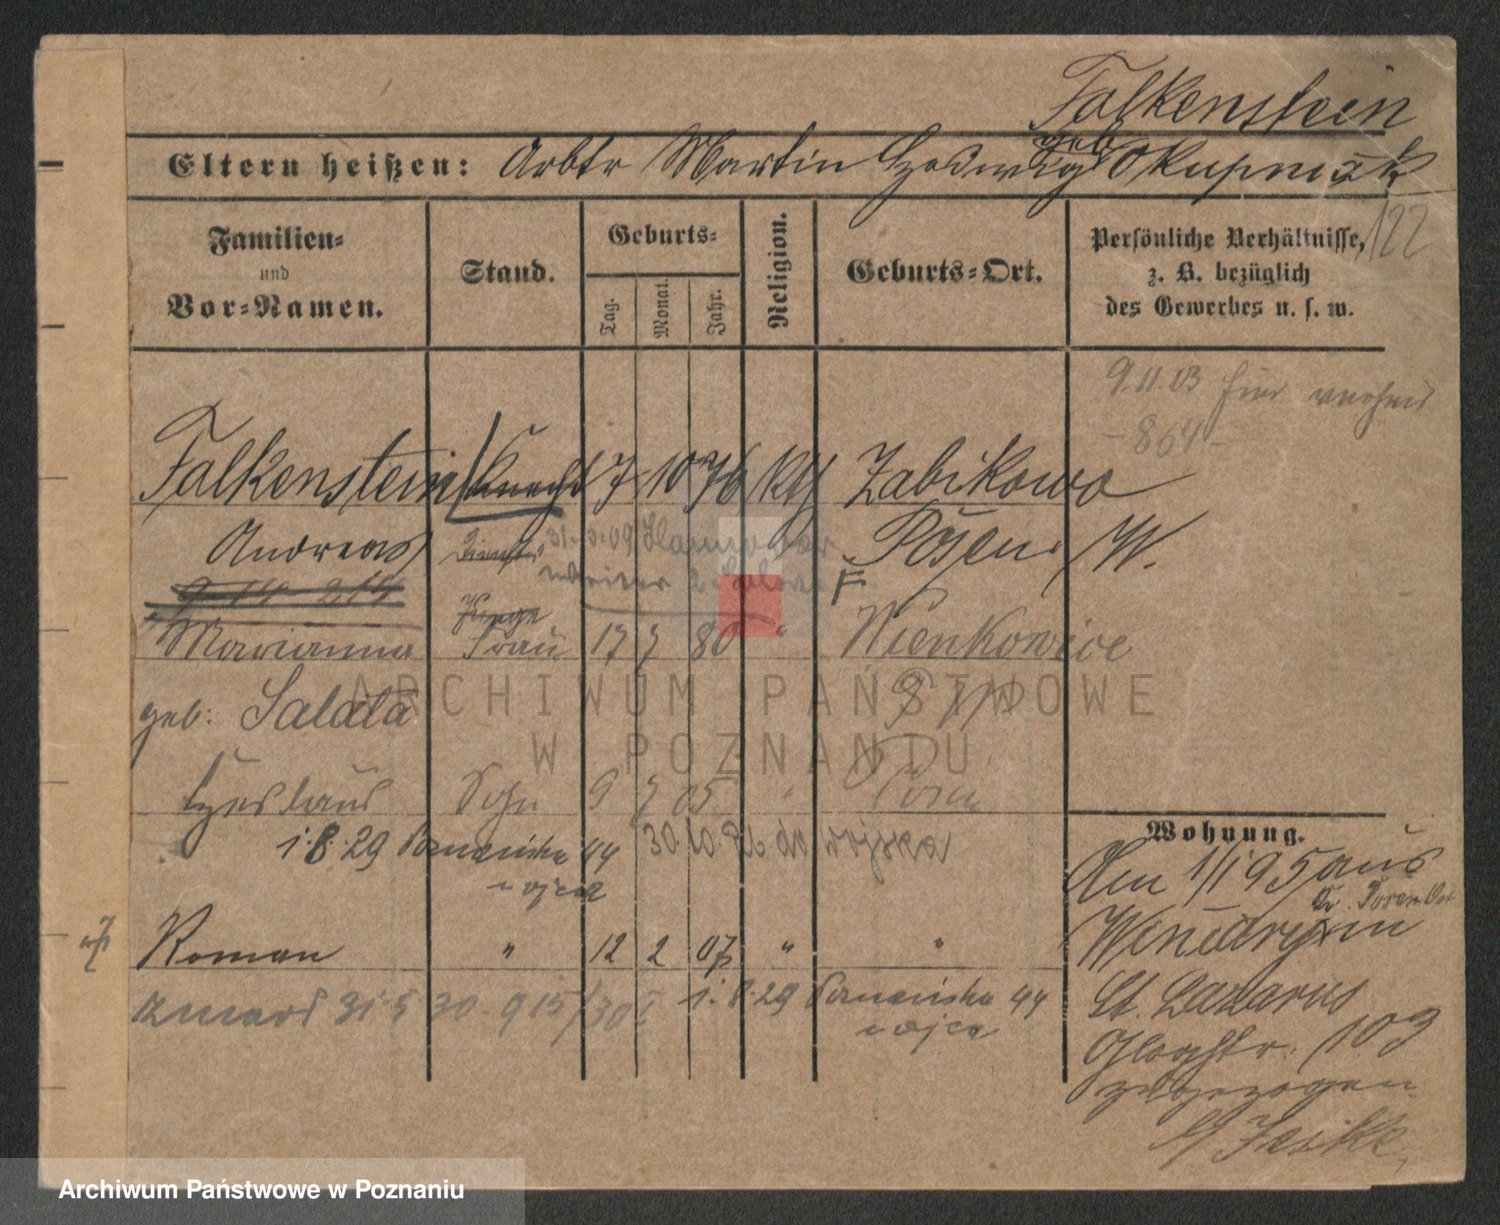 Falkenstein
Eltern heißen: Arbtr Martin Hedwig geb Okupniak
122
Familien- und Vor-Namen.
Stand.
Geburts-
Tag.
Monat.
Jahr.
Religion.
Geburts-Ort.
Persönliche Verhältnisse,
z. B. bezüglich
des Gewerbes u. s. w.
9.11.03
864
Falkenstein Knecht 7 10 76 kth Zabikowo
Andreas Posen /W.
31.3.09
Marianna Frau 17 7 80 " Wienkowice
geb: Salata
Czeslaus Sohn 9 7 05 " Posen
1.8.29 44 30.10.26 do wojska
u ojca
Roman " 12 2 07 " "
zmarł 31.5 30 915/30 1.8.29 44
u ojca
Wohnung.
Am 1/1 95 aus
Kr. Posen Ost
St. Lazarus
Glogstr. 103
zugezogen
Jeske
ARCHIWUM PAŃSTWOWE
W POZNANIU
Archiwum Państwowe w Poznaniu